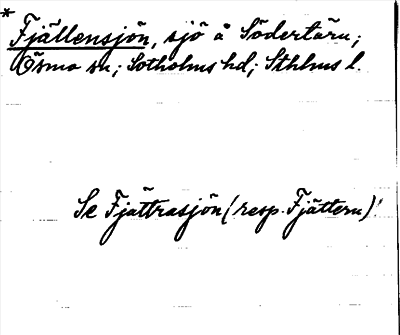 * Fjällensjön, sjö å Södertörn;
Ösmo sn; Sotholms hd; Sthlms l.
Se Fjättrasjön (resp. Fjättern)!